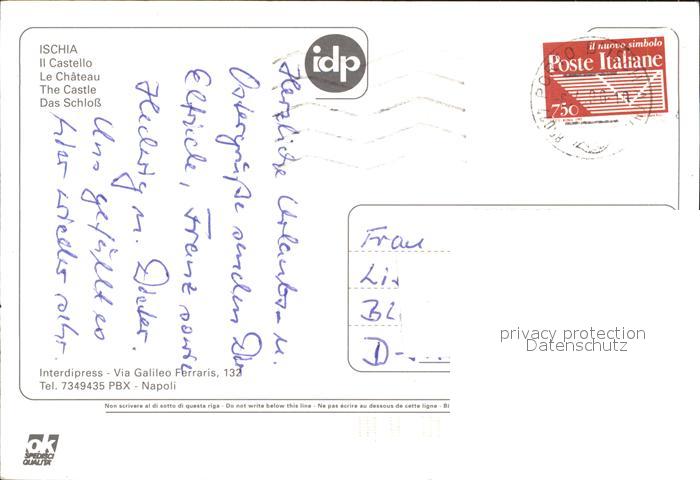 ISCHIA
Il Castello
Le Château
The Castle
Das Schloß
idp
il nuovo simbolo
Poste Italiane
750
Herzliche Urlaubs- u.
Ostergrüße senden Dir
Elfriede, Franz sowie
Hedwig u. Dieter.
Uns gefällt es
hier wieder sehr.
Frau
Li
BL
D-
privacy protection
Datenschutz
Interdipress - Via Galileo Ferraris, 132
Tel. 7349435 PBX - Napoli
Non scrivere al di sotto di questa riga - Do not write below this line - Ne pas écrire au dessous de cette ligne - Bi
ok
SPEDISCI
QUALITÀ